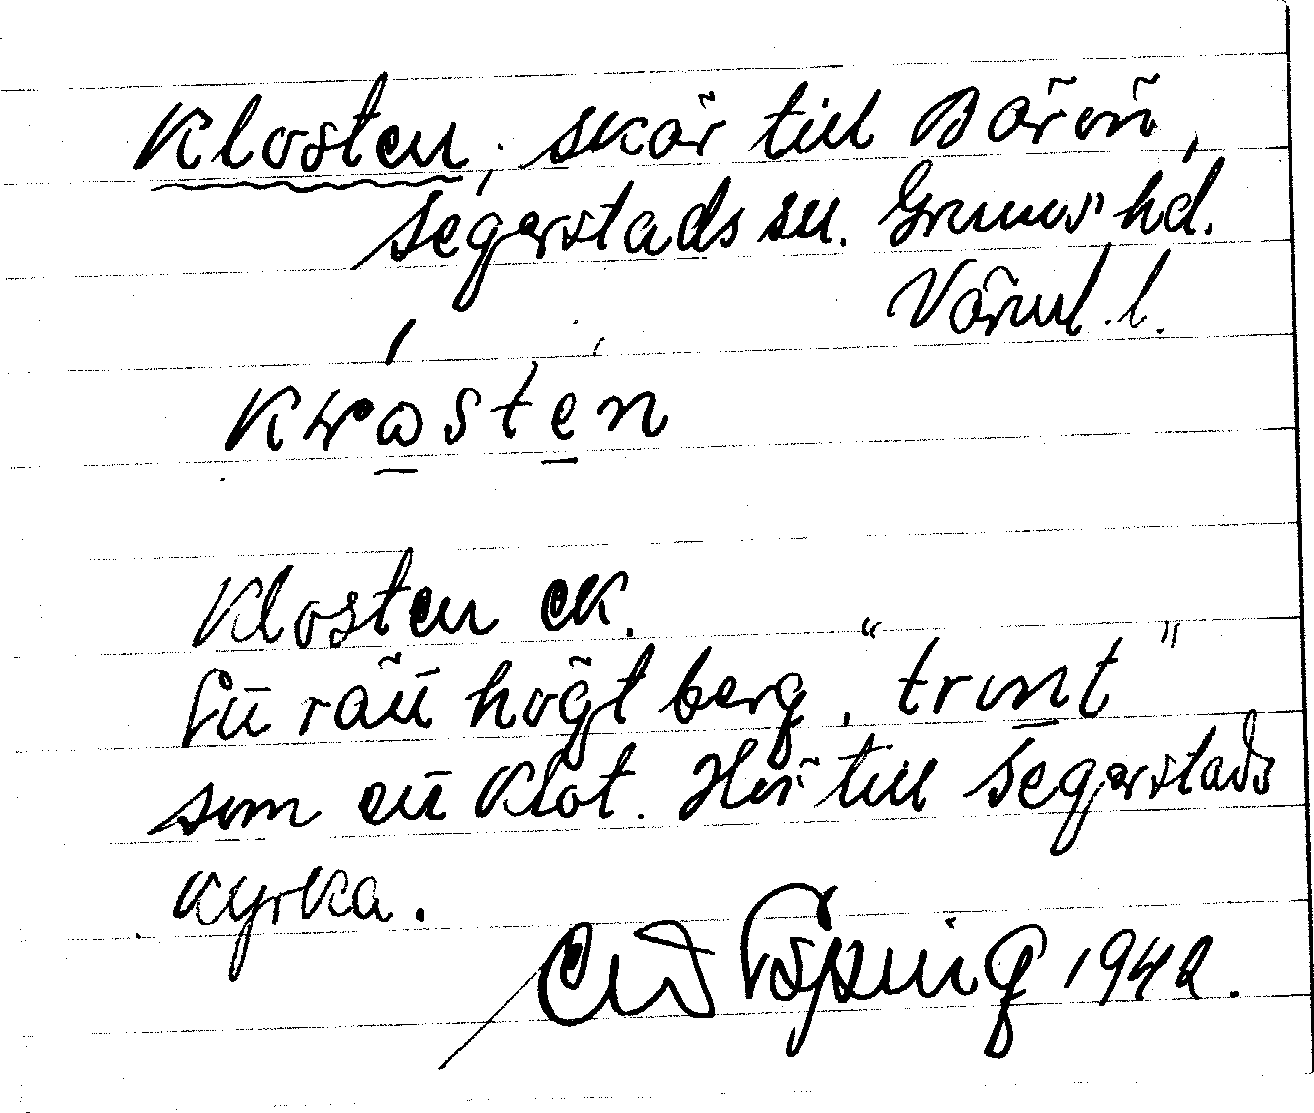 Klosten, skär till Bärön,
Segerstads sn. Grums hd.
Värml. l.
Klosten ek.
En rätt högt berg, "trint"
som ett klot. Hör till Segerstads
kyrka.
1942.